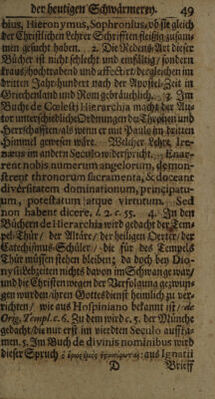 der heutigen Schwärmerey. 49
bius, Hieronymus, Sophronius, ob sie gleich
der Christlichen Lehrer Schrifften fleissig zusam-
men gesucht haben. 2. Die Redens-Art dieser
Bücher ist nicht schlecht und einfältig/ sondern
kraus/ hochtrabend und affectirt dergleichen im
dritten Jahrhundert nach der Apostel-Zeit in
Griechenland und Rom gebräuchlich. 3. Im
Buch de Cœlesti Hierarchia macht der Au-
tor unterschiedliche Ordnungen du Thronen und
Herrschafften/ als wenn er mit Paulo im dritten
Himmel gewesen wäre. Welcher Lehre, Ire-
næus im andern Seculo widerspricht.
narent nobis numerum angelorum, demon-
strent thronorum sacramenta, & doceant
diversitatem dominationum, principatu-
um, potestatum atque virtutum. Sed
non habent dicere, l. 2. c. 55. 4. In den
Büchern de Hierarchia wird gedacht der Tem-
pel-Thür/ der Altäre/ der heiligen Oerter/ der
Catechismus-Schüler/ die für des Tempels
Thür müssen stehen bleiben; da doch bey Dio-
nysii Lebzeiten nichts davon im Schwange war/
und die Christen wegen der Verfolgung gezwun-
gen worden/ ihren Gottesdienst heimlich zu ver-
richten/ wie aus Hospiniano bekant ist/ de
Orig. Templ. c. 6. Zu dem wird c. 5. der Münche
gedacht/ die nur erst im vierdten Seculo aufka-
men. 5. Im Buch de divinis nominibus wird
dieser Spruch ὁ ἔρως ἐμὸς ἐσταύρωται: aus Ignatii
D Brieff